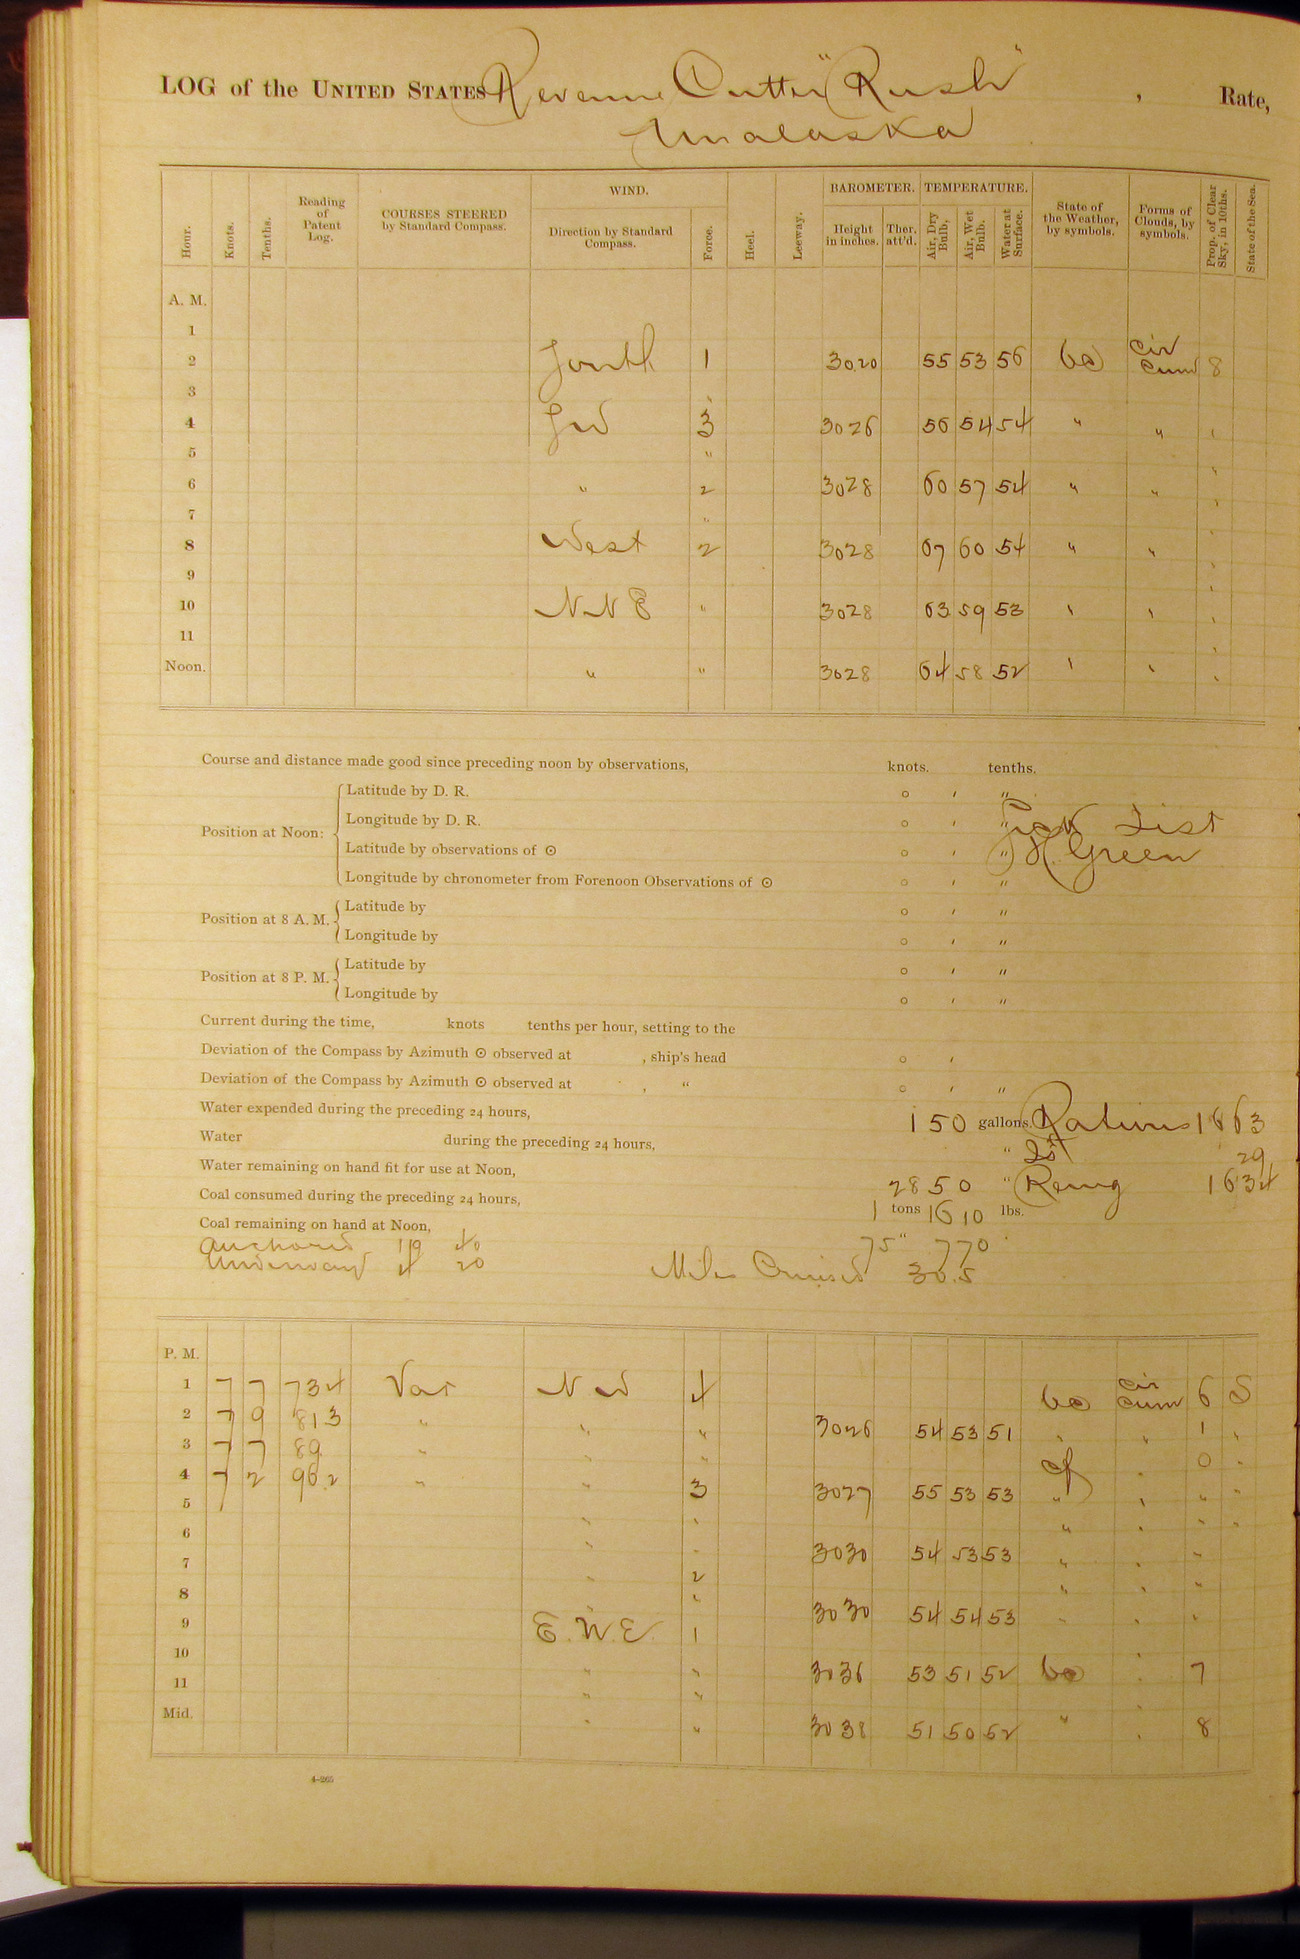 LOG of the UNITED STATES Revenue Cutter "Rush", Rate,
Unalaska
Hour. Knots. Tenths. Reading of Patent Log. COURSES STEERED by Standard Compass. WIND. Direction by Standard Compass. Force. Heel. Leeway. BAROMETER. Height in inches. Ther. att'd. TEMPERATURE. Air, Dry Bulb. Air, Wet Bulb. Water at Surface. State of the Weather, by symbols. Forms of Clouds, by symbols. Prop. of Clear Sky, in 10ths. State of the Sea.
A. M.
1
2 South 1 30.20 55 53 56 bc Cir Cum 8
3 "
4 Sw 3 3026 56 54 54 " " "
5 "
6 " 2 3028 60 57 54 " " "
7 "
8 West 2 3028 67 60 54 " " "
9
10 N N E " 3028 63 59 53 " " "
11
Noon. " " 3028 64 58 52 " " "
Course and distance made good since preceding noon by observations, knots. tenths.
Position at Noon:
Latitude by D. R. ° ' "
Longitude by D. R. ° ' " Sick List
Latitude by observations of ☉ ° ' " H. Green
Longitude by chronometer from Forenoon Observations of ☉ ° ' "
Position at 8 A. M.
Latitude by ° ' "
Longitude by ° ' "
Position at 8 P. M.
Latitude by ° ' "
Longitude by ° ' "
Current during the time, knots tenths per hour, setting to the
Deviation of the Compass by Azimuth ☉ observed at , ship's head ° '
Deviation of the Compass by Azimuth ☉ observed at , " ° ' "
Water expended during the preceding 24 hours, 150 gallons. Rations 1663
Water during the preceding 24 hours, " 29
Water remaining on hand fit for use at Noon, 2850 " Remg 1634
Coal consumed during the preceding 24 hours, 1 tons 1610 lbs.
Coal remaining on hand at Noon, 75 " 770
Anchored 19 40
Underway 4 20 Miles Cruised 30.5
P. M.
1 7 7 73 4 Var N W 4 bc Cir Cum 6 S
2 7 9 81 3 " " " 3026 54 53 51 " " 1 "
3 7 7 89 " " " cf " 0 "
4 7 2 96.2 " " 3 3027 55 53 53 " " " "
5 7 " " " " " "
6 " " 3030 54 53 53 " " "
7 " 2 " " "
8 " " 3030 54 54 53 " " "
9 E.N.E. 1 "
10 " " 3036 53 51 52 bc " 7
11 " " "
Mid. " " 3038 51 50 52 " " 8
4-265